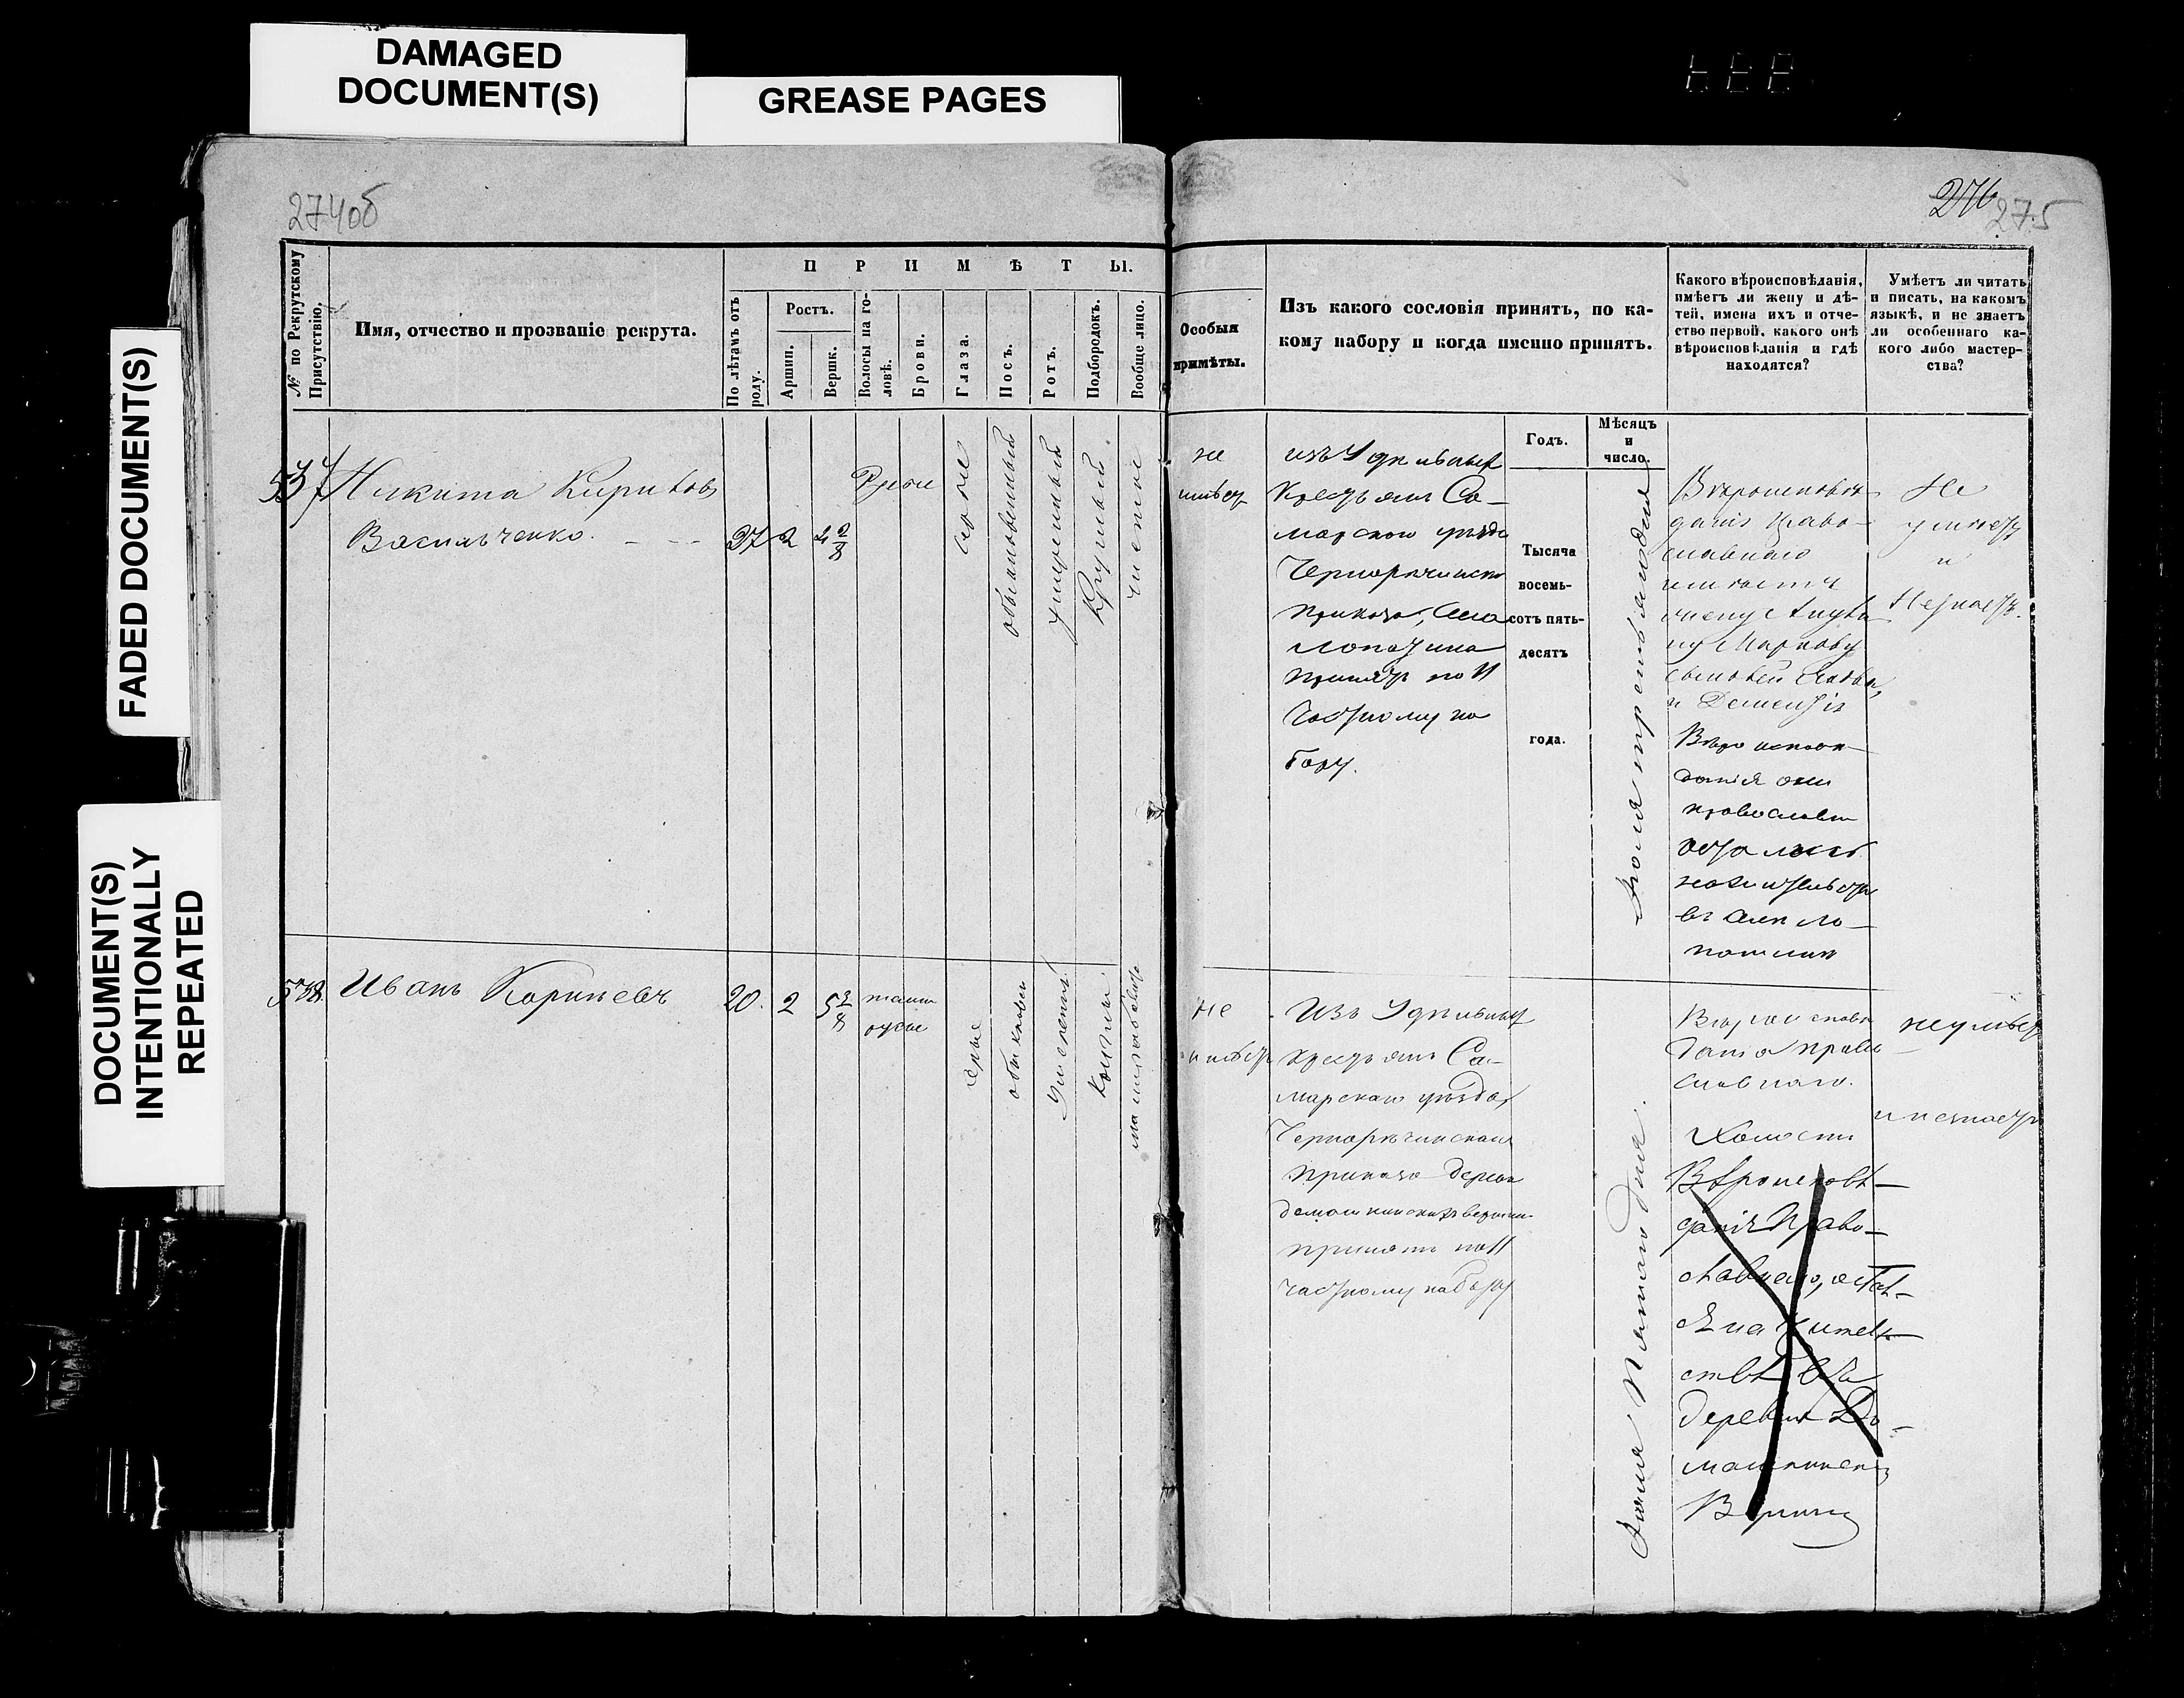 DAMAGED
DOCUMENT(S)
GREASE PAGES
FADED DOCUMENT(S)
DOCUMENT(S)
INTENTIONALLY
REPEATED
274об
276
275
№ по Рекрутскому
Присутствію.
Имя, отчество и прозваніе рекрута.
ПРИМѢТЫ.
По лѣтамъ отъ
роду.
Ростъ.
Аршин.
Вершк.
Волосы на го-
ловѣ.
Брови.
Глаза.
Носъ.
Ротъ.
Подбородокъ.
Вообще лицо.
Особыя
примѣты.
Изъ какого сословія принятъ, по ка-
кому набору и когда именно принятъ.
Какого вѣроисповѣданія,
имѣетъ ли жену и дѣ-
тей, имена ихъ и отче-
ство первой, какого онѣ
вѣроисповѣданія и гдѣ
находятся?
Умѣетъ ли читать
и писать, на какомъ
языкѣ, и не знаетъ
ли особеннаго ка-
кого либо мастер-
ства?
Годъ.
Мѣсяцъ
и
число.
Тысяча
восемь-
сотъ пять-
десятъ
года.
537
Никита Кириловъ
Васильченко.
37
2
4 2/8
Русые
обыкновенный
умѣренный
Круглый
чистое
не
имѣетъ
изъ Удѣльныхъ
Крестьянъ Са-
марскаго уѣзда
Чернорѣчинскаго
приказа, Села
Лопатина
принятъ по 11
частному на
бору.
Вѣроисповѣ-
данія Право-
славнаго
имѣетъ
жену
Маркову
сыновей
и Дементія
Вѣроисповѣ-
данія они
православнаго
въ Селѣ Ло-
патинѣ
Не
умѣетъ
и
Незнаетъ.
538.
Иванъ Корнѣевъ
20.
2
5 3/8
темно
русые
сѣрые
обыкновен
Умѣренный
Круглый
Не
имѣетъ
Изъ Удѣльныхъ
крестьянъ Са-
марскаго уѣзда,
Чернорѣчинскаго
приказа дерев
Домашкинскихъ вершинъ
принятъ по 11
частному набору
Іюня Пятаго дня.
Вѣроисповѣ
данія право
славнаго.
Холостъ
Вѣроисповѣ-
данія Право-
славнаго, остав-
деревни До-
машкинскихъ
Вершинъ
неумѣетъ
и незнаетъ